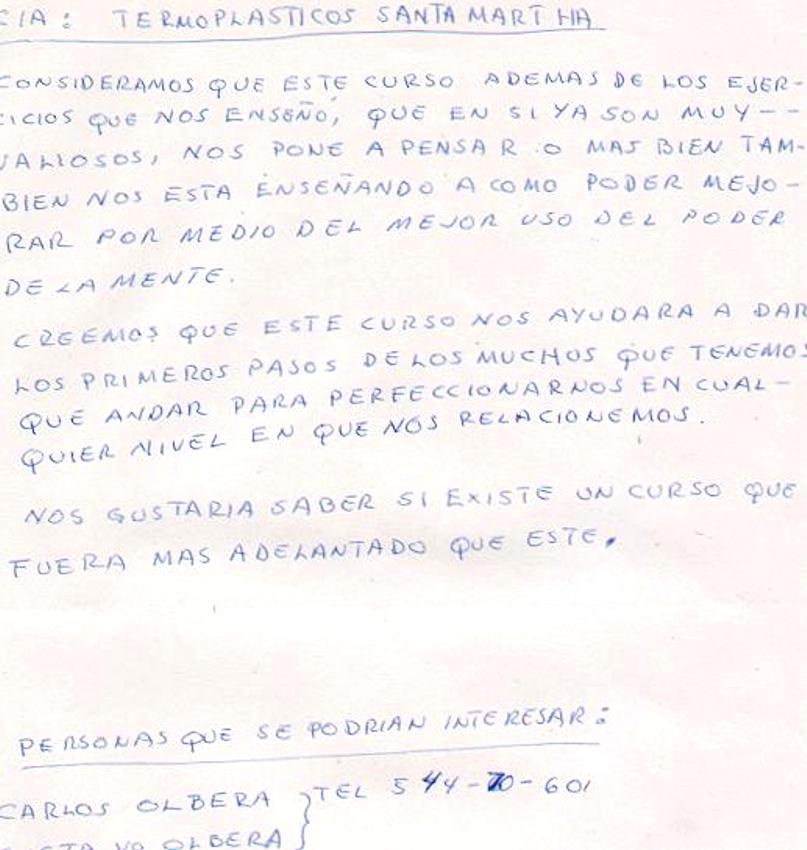 CIA: TERMOPLASTICOS SANTA MARTHA
CONSIDERAMOS QUE ESTE CURSO ADEMAS DE LOS EJER-
CICIOS QUE NOS ENSEÑO, QUE EN SI YA SON MUY--
VALIOSOS, NOS PONE A PENSAR O MAS BIEN TAM-
BIEN NOS ESTA ENSEÑANDO A COMO PODER MEJO-
RAR POR MEDIO DEL MEJOR USO DEL PODER
DE LA MENTE.
CREEMOS QUE ESTE CURSO NOS AYUDARA A DAR
LOS PRIMEROS PASOS DE LOS MUCHOS QUE TENEMOS
QUE ANDAR PARA PERFECCIONARNOS EN CUAL-
QUIER NIVEL EN QUE NOS RELACIONEMOS.
NOS GUSTARIA SABER SI EXISTE UN CURSO QUE
FUERA MAS ADELANTADO QUE ESTE.
PERSONAS QUE SE PODRIAN INTERESAR:
CARLOS OLBERA } TEL 544-70-601
OLBERA